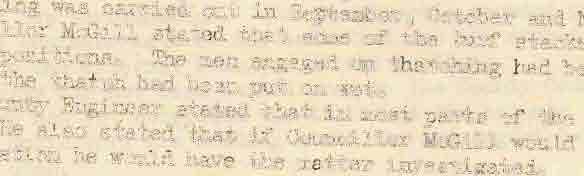 ing was carried out in September, October and
ller McGill stated that some of the turf stacks
positions. The men engaged in thatching had be
the thatch had been put on wet.
unty Engineer stated that in most parts of the
he also stated that if Councillor McGill would
ation he would have the matter investigated.